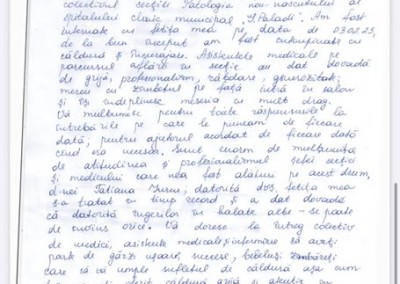 colectivul secției Patologia nou-născutului al
spitalului clinic municipal "G. Paladi". Am fost
internate cu fetița mea pe data de 03.02.23,
de la bun început am fost înconjurate cu
căldură și îngrijire. Asistentele medicale pe
parcursul aflării în secție au dat dovadă
de grijă, profesionalism, răbdare, generozitate;
mereu cu zâmbetul pe față intră în salon
și își îndeplinesc meseria cu mult drag.
Vă mulțumesc pentru toate răspunsurile la
întrebările pe care le puneam de fiecare
dată, pentru ajutorul acordat de fiecare dată
când era nevoie. Sunt enorm de mulțumită
de atitudinea și profesionalismul șefei secției
și medicului care ne-a fost alături pe acest drum,
d-nei Tatiana; datorită dvs, fetița mea
s-a tratat în timp record și a dat dovadă
că datorită îngerilor în halate albe - se poate
de învins orice. Vă doresc la întreg colectiv
de medici, asistente medicale și infirmiere să aveți
parte de gărzi ușoare, succese, bebeluși zâmbăreți
care să vă umple sufletul de căldură așa cum
oferit căldură grijă și